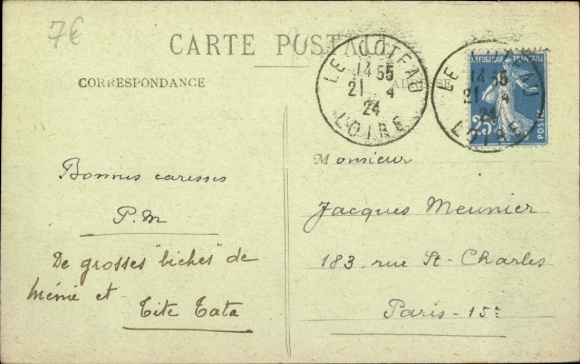 7€
CARTE POSTALE
CORRESPONDANCE
LE COTEAU
14 55
21 4
24
LOIRE
LE COTEAU
14 55
21 4
24
LOIRE
REPUBLIQUE FRANÇAISE
25c
POSTES
Bonnes caresses
P.M
De grosses "biches" de
Mémé et Tite Tata
Monsieur
Jacques Meunier
183, rue St-Charles
Paris-15e